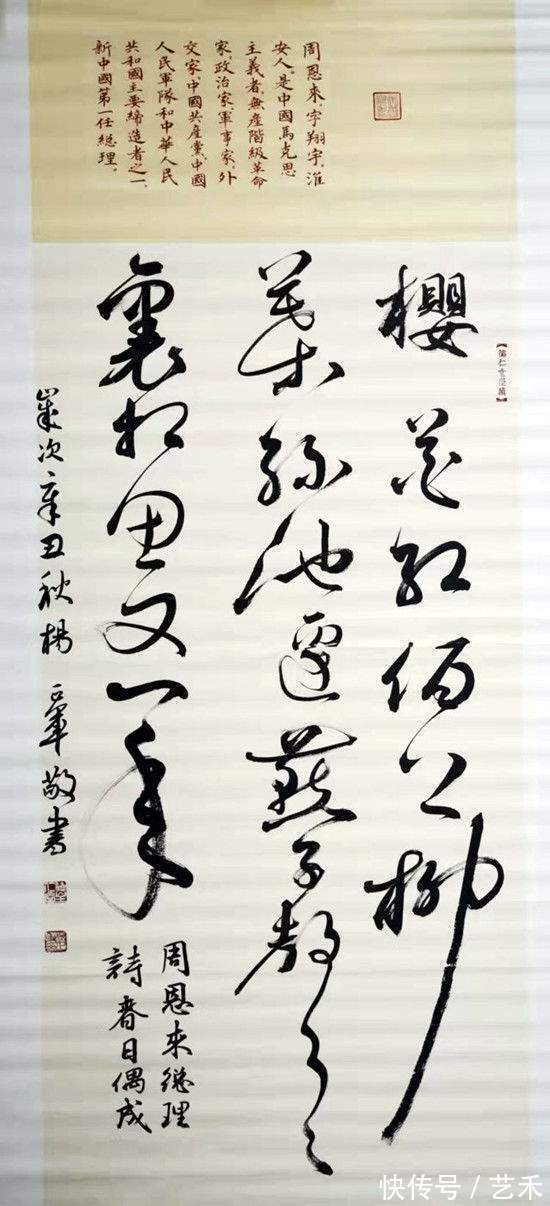 周恩來,字翔宇,淮
安人,是中國馬克思
主義者,無產階級革命
家,政治家,軍事家,外
交家,中國共產黨,中國
人民軍隊和中華人民
共和國主要締造者之一,
新中國第一任總理。
櫻花紅陌上柳
葉綠池邊燕子聲々
裏相思又一年
周恩來總理
詩春日偶成
歲次辛丑秋楊敬書
快传号/艺禾